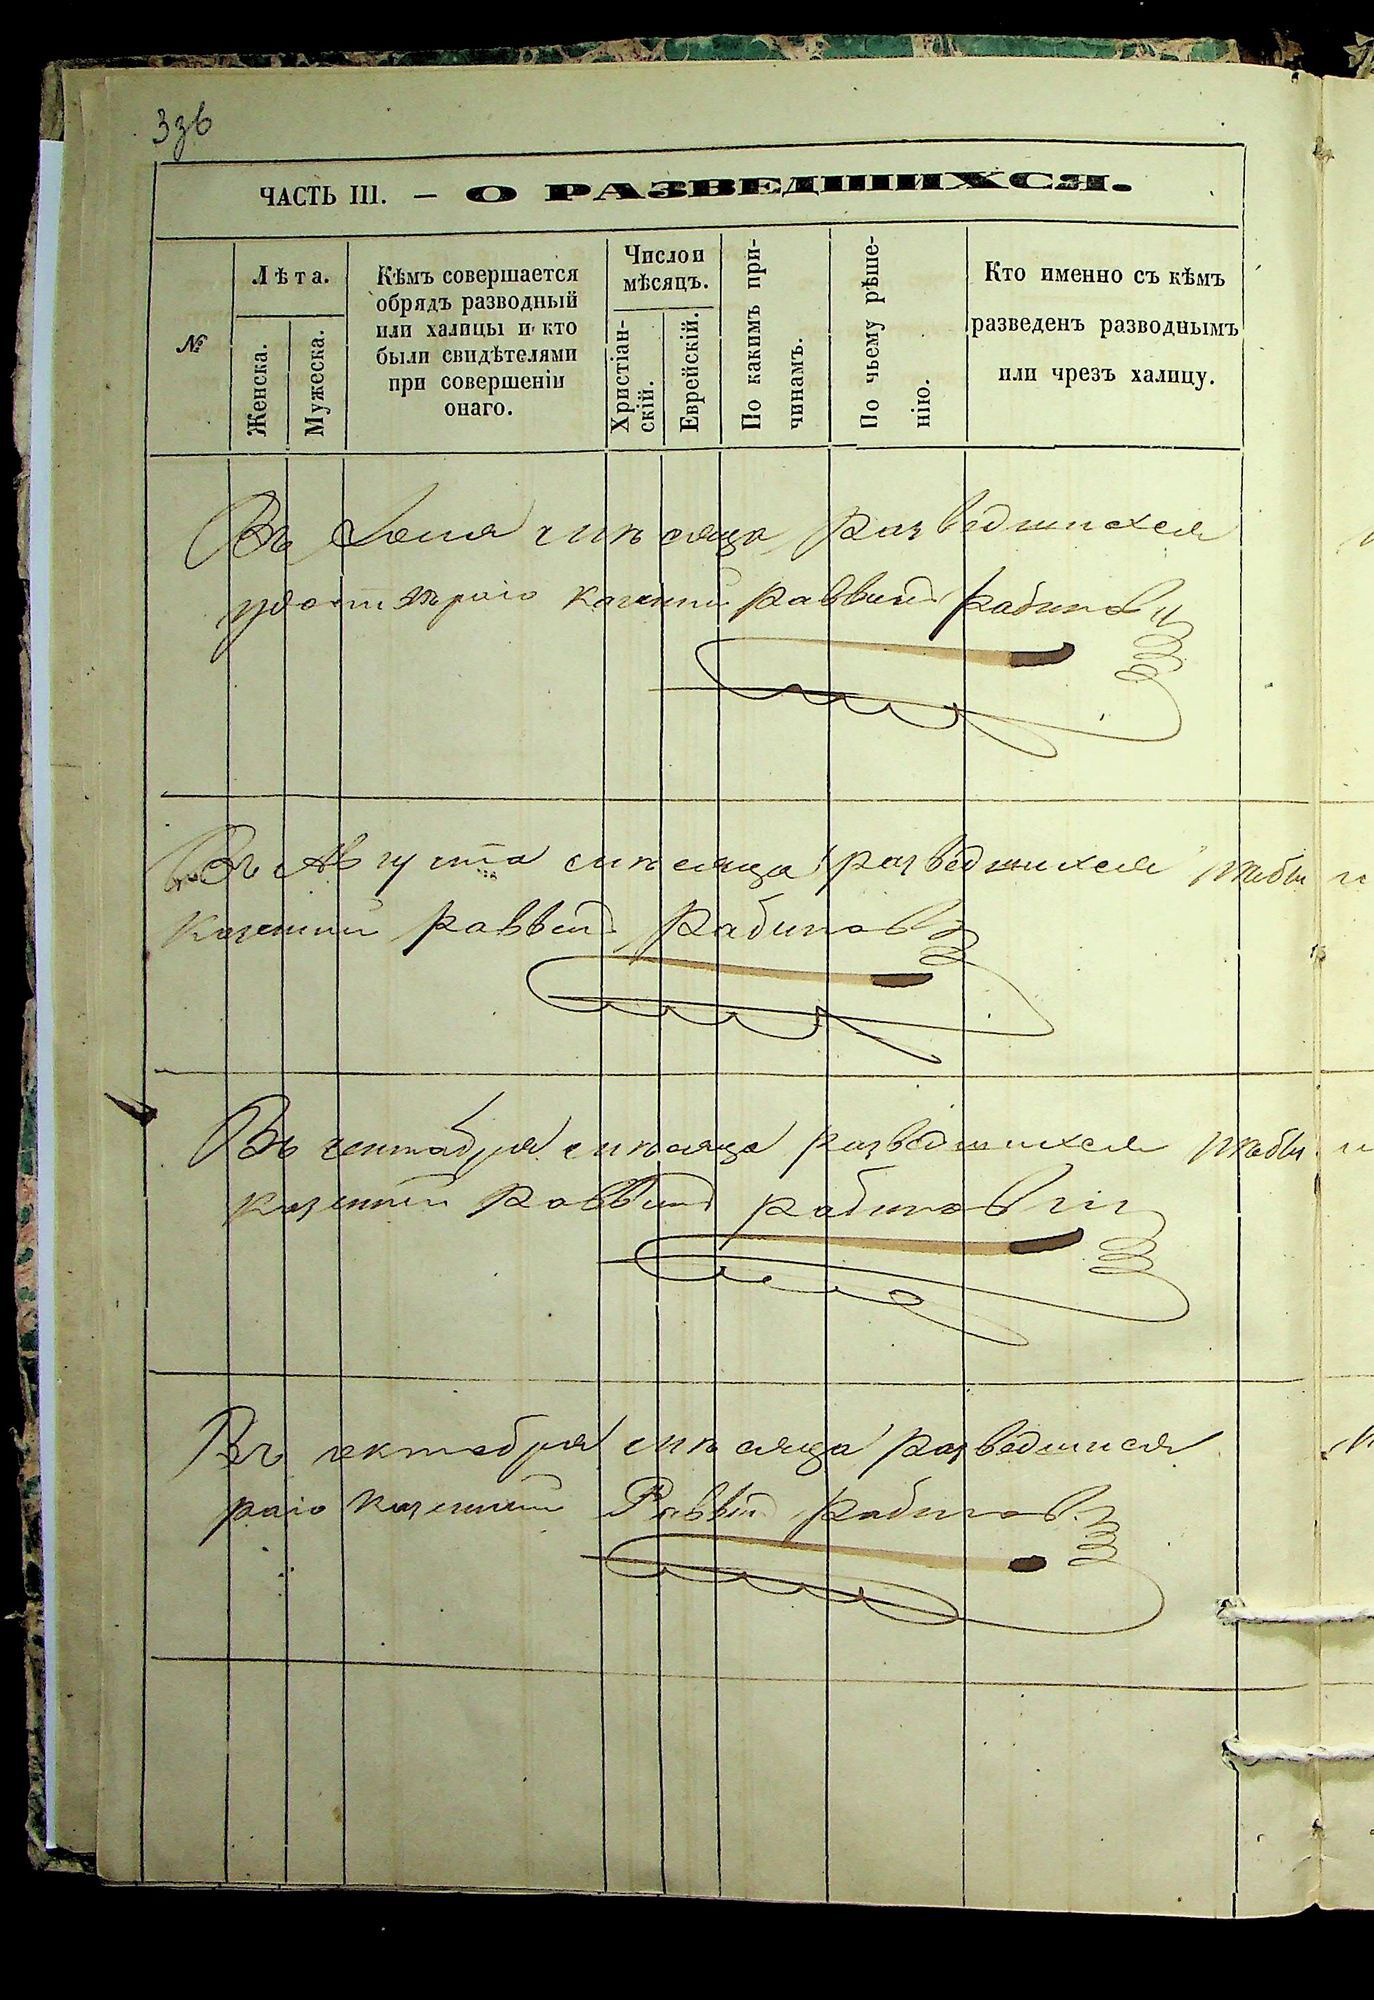 ЧАСТЬ III. — О РАЗВЕДШИХСЯ.
№
Лѣта.
Женска.
Мужеска.
Кѣмъ совершается
обрядъ разводный
или халицы и кто
были свидѣтелями
при совершеніи
онаго.
Число и
мѣсяцъ.
Христіан-
скій.
Еврейскій.
По какимъ при-
чинамъ.
По чьему рѣше-
нію.
Кто именно съ къмъ
разведенъ разводнымъ
или чрезъ халицу.
Въ мѣсяца разведшихся
казенный раввинъ Рабинов
Въ Августа мѣсяца разведшихся
казенный раввинъ Рабинов
Въ сентября мѣсяца разведшихся
казенный раввинъ Рабинов
Въ октября мѣсяца разведшися
казенный Раввин Рабинов